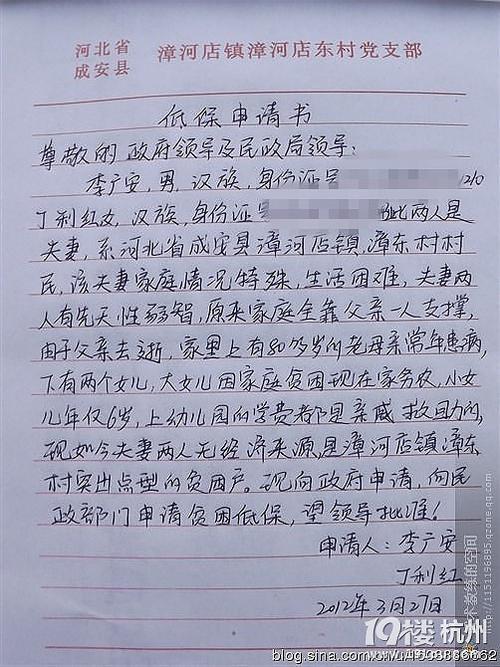 河北省
成安县
漳河店镇漳河店东村党支部
低保申请书
尊敬的政府领导及民政局领导：
李广安，男，汉族，身份证号
丁利红女，汉族，身份证号 此两人是
夫妻，系河北省成安县漳河店镇，漳东村村
民，该夫妻家庭情况特殊，生活困难，夫妻两
人有先天性弱智，原来家庭全靠父亲一人支撑，
由于父亲去逝，家里上有80多岁的老母亲常年患病，
下有两个女儿，大女儿因家庭贫困现在家务农，小女
儿年仅6岁，上幼儿园的学费都是亲戚救助的，
现如今夫妻两人无经济来源，是漳河店镇漳东
村突出点型的贫困户。现向政府申请，向民
政部门申请贫困低保，望领导批准！
申请人：李广安
丁利红
2012年3月27日
术教练的空间
http://1151196895.qzone.qq.com
19楼 杭州